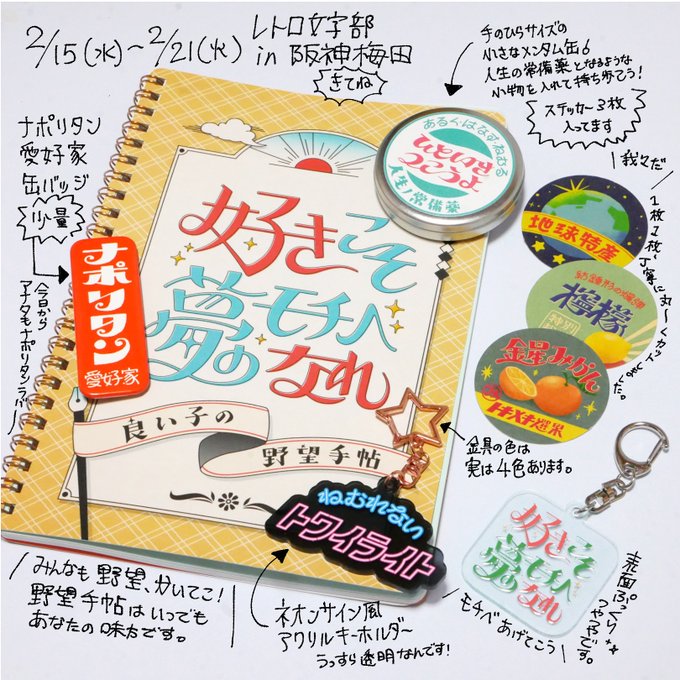 2/15(水)～2/21(火)
レトロ文字部
in 阪神梅田
きてね
手のひらサイズの
小さなメンタム缶6
人生の常備薬となるような
小物を入れて持ち歩こう!
ステッカー3枚
入ってます
ナポリタン
愛好家
缶バッジ
少量
今日から
アナタもナポリタンラバー
ナポリタン
愛好家
好きこそ
夢の
モチベ
なれ
良い子の
野望手帖
あるく・はなす・ねむる
人生ノ常備薬
我々だ
1枚1枚丁寧に丸〜くカット
しました。
地球特産
檸檬
特別
金星みかん
トキメキ惑果
金具の色は
実は4色あります。
ねむれない
トワイライト
好きこそ
夢の
モチベ
なれ
表面ぷっくり
つやつやです。
モチベあげてこう
みんなも野望、かいてこ!
野望手帖はいつでも
あなたの味方です。
ネオンサイン風
アクリルキーホルダー
うっすら透明なんです!